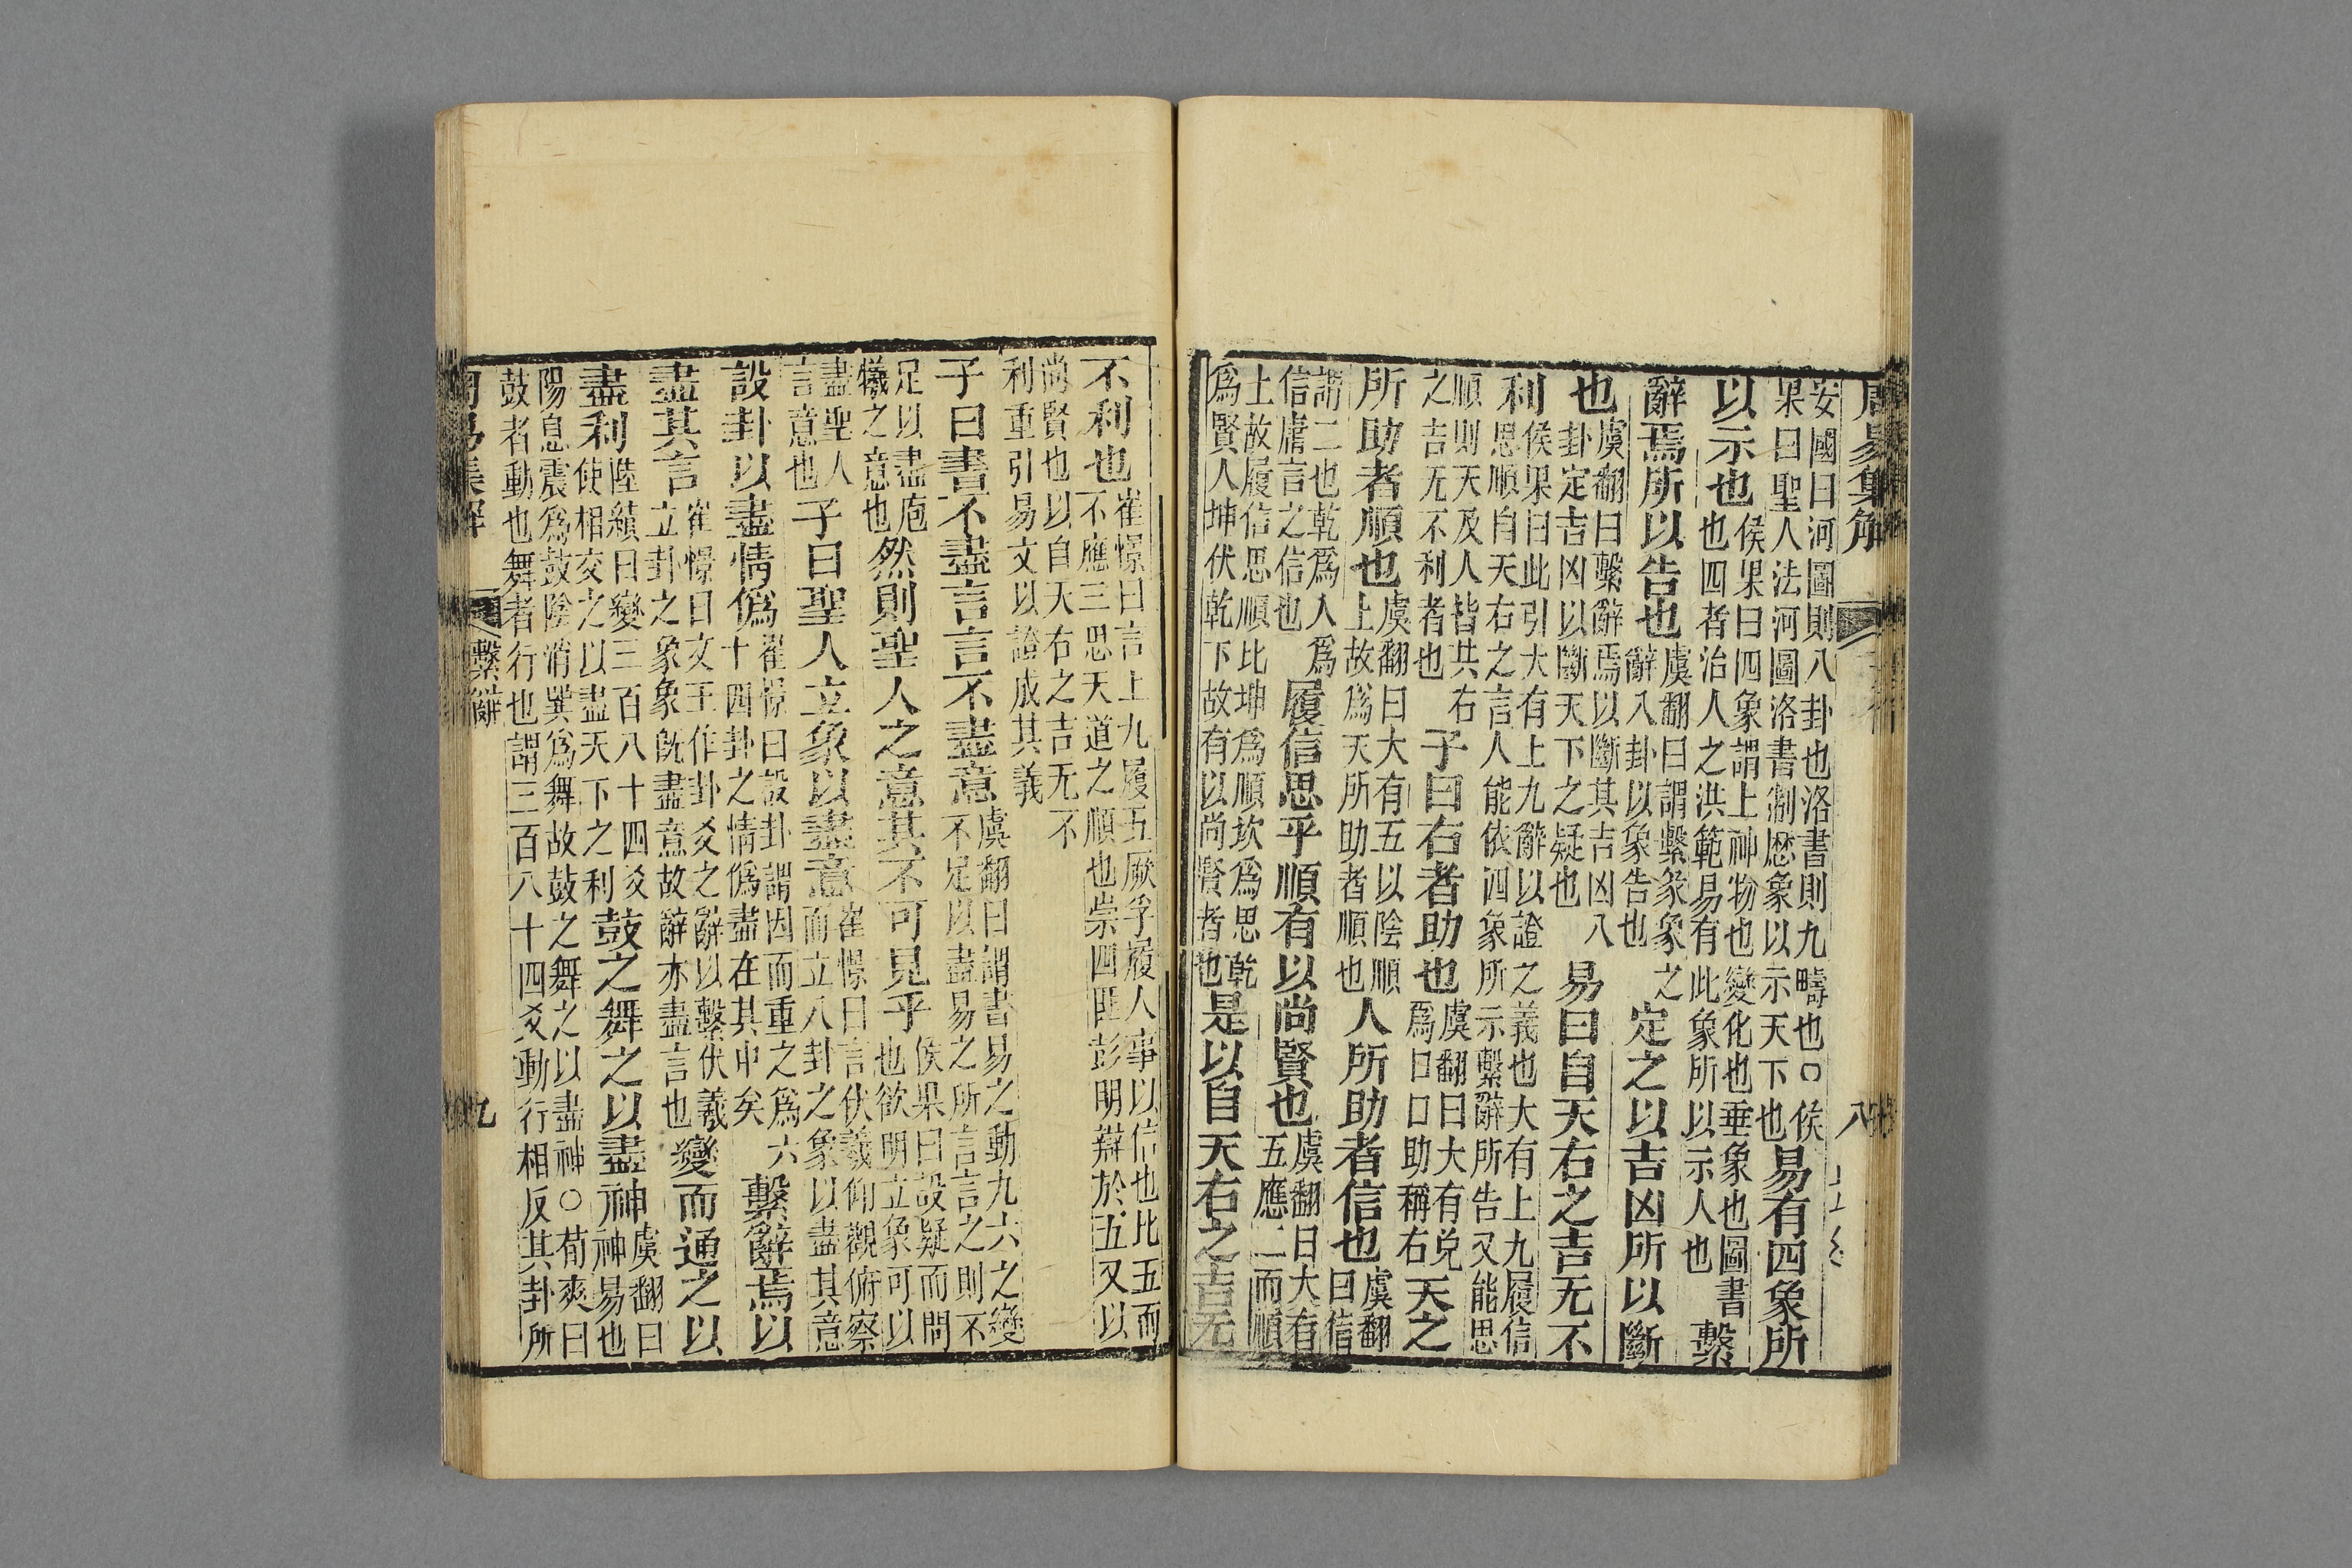 周易集解 八
安國曰河圖則八卦也洛書則九疇也○侯果曰聖人法河圖洛書制歷象以示天下也易有四象所
以示也侯果曰四象謂上神物也變化也垂象也圖書也四者治人之洪範易有此象所以示人也繫
辭焉所以告也虞翻曰謂繫彖象之辭八卦以象告也定之以吉凶所以斷
也虞翻曰繫辭焉以斷其吉凶八卦定吉凶以斷天下之疑也易曰自天右之吉无不
利侯果曰此引大有上九辭以證之義也大有上九履信思順自天右之言人能依四象所示繫辭所告又能思
順則天及人皆共右之吉无不利者也子曰右者助也虞翻曰大有兌爲口口助稱右天之
所助者順也虞翻曰大有五以陰順上故爲天所助者順也人所助者信也虞翻曰信
謂二也乾爲人爲信庸言之信也履信思乎順有以尚賢也虞翻曰大有五應二而順
上故履信思順比坤爲順坎爲思乾爲賢人坤伏乾下故有以尚賢者也是以自天右之吉无
不利也崔憬曰言上九履五厥孚履人事以信也比五而不應三思天道之順也崇四匪彭明辯於五又以
尚賢也以自天右之吉无不利重引易文以證成其義
子曰書不盡言言不盡意虞翻曰謂書易之動九六之變不足以盡易之所言言之則不
足以盡庖犧之意也然則聖人之意其不可見乎侯果曰設疑而問也欲明立象可以
盡聖人言意也子曰聖人立象以盡意崔憬曰言伏羲仰觀俯察而立八卦之象以盡其意
設卦以盡情僞崔憬曰設卦謂因而重之爲六十四卦之情僞盡在其中矣繫辭焉以
盡其言崔憬曰文王作卦爻之辭以繫伏羲立卦之象象既盡意故辭亦盡言也變而通之以
盡利陸績曰變三百八十四爻使相交之以盡天下之利鼓之舞之以盡神虞翻曰神易也
陽息震爲鼓陰消巽爲舞故鼓之舞之以盡神○荀爽曰鼓者動也舞者行也謂三百八十四爻動行相反其卦所
周易集解 繫辭 九